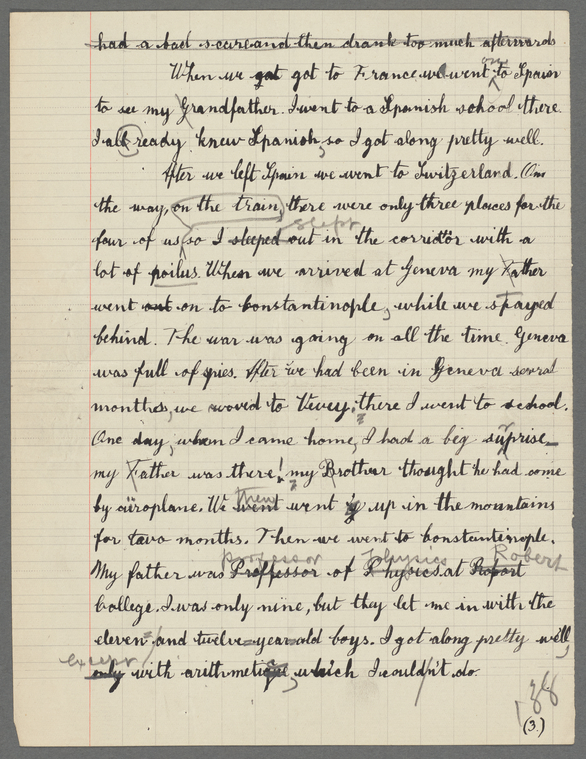 had a bad scare and then drank too much afterwards
When we got got to France we went on to Spain
to see my Grandfather. I went to a Spanish school there.
I allready knew Spanish, so I got along pretty well.
After we left Spain we went to Switzerland. On
the way, on the train, there were only three places for the
slept
four of us, so I sleeped out in the corridor with a
lot of poilus. When we arrived at Geneva my Father
went out on to Constantinople, while we stayed
behind. The war was going on all the time. Geneva
was full of spies. After we had been in Geneva several
months, we moved to Vevey; there I went to school.
One day, when I came home, I had a big surprise—
my Father was there! my Brother thought he had come
by aïroplane. We then went up in the mountains
for two months. Then we went to Constantinople.
professor physics Robert
My father was Proffessor of Physics at Robort
College. I was only nine, but they let me in with the
eleven= and twelve=year=old boys. I got along pretty well,
except
only with arithmetique, which I couldn't do.
38
(3.)